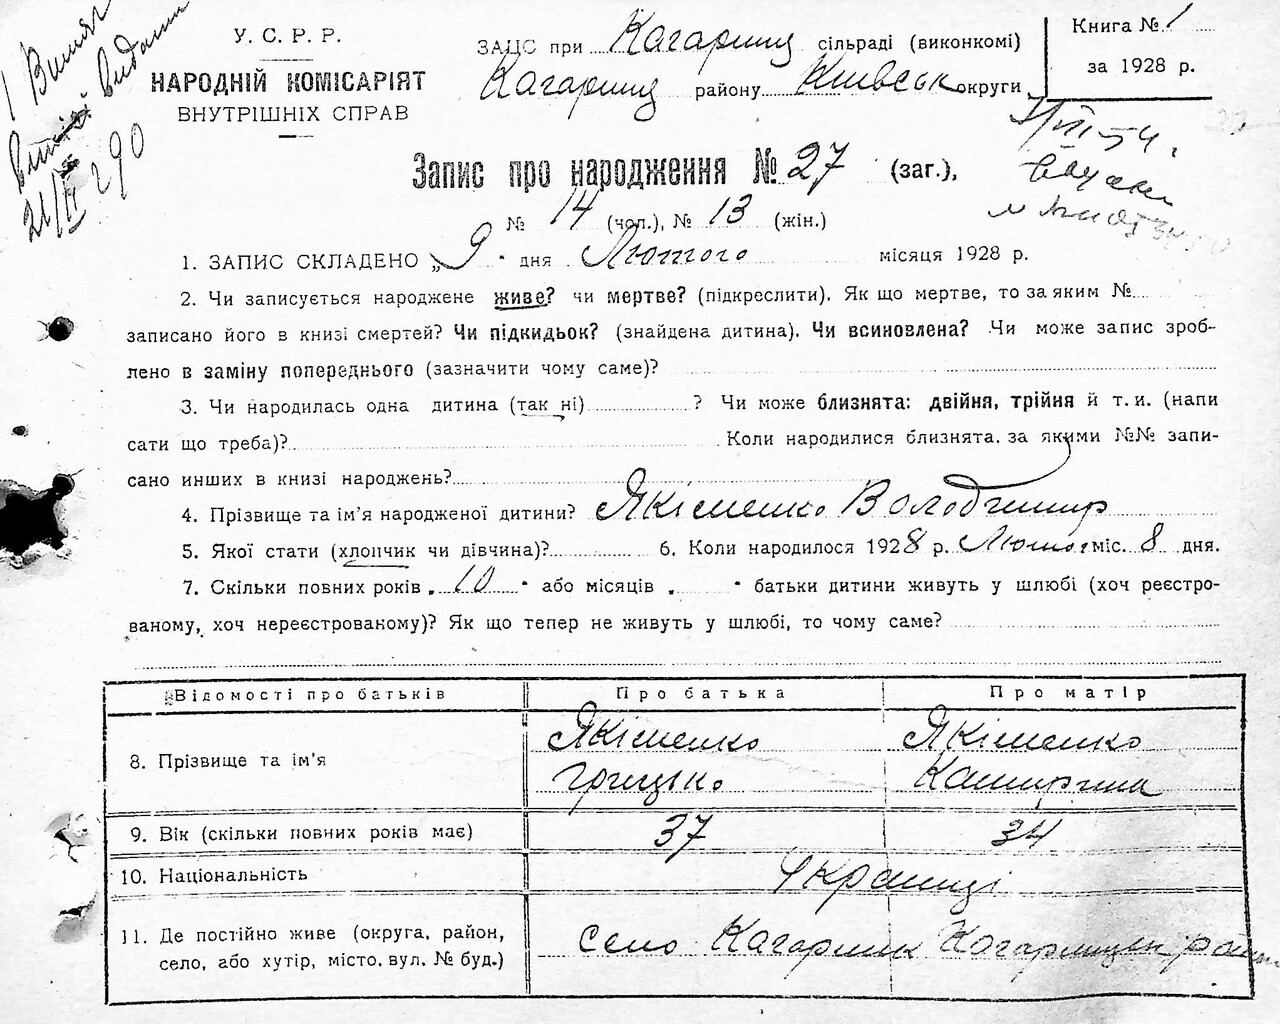 І Витяг
видано
21/ІІ 290
У. С. Р. Р.
НАРОДНІЙ КОМІСАРІЯТ
ВНУТРІШНІХ СПРАВ
ЗАЦС при Кагарлиц сільраді (виконкомі)
Кагарлиц району Київськ округи
Книга № 1
за 1928 р.
Запис про народження № 27 (заг.),
№ 14 (чол.), № 13 (жін.)
1. ЗАПИС СКЛАДЕНО „9" дня Лютого місяця 1928 р.
2. Чи записується народжене живе? чи мертве? (підкреслити). Як що мертве, то за яким №
записано його в книзі смертей? Чи підкидьок? (знайдена дитина). Чи всиновлена? Чи може запис зроб-
лено в заміну попереднього (зазначити чому саме)?
3. Чи народилась одна дитина (так ні) ? Чи може близнята: двійня, трійня й т. и. (напи
сати що треба)? Коли народилися близнята, за якими №№ запи-
сано инших в книзі народжень?
4. Прізвище та ім'я народженої дитини? Якіменко Володимир
5. Якої стати (хлопчик чи дівчина)? 6. Коли народилося 1928 р. Лютог міс. 8 дня.
7. Скільки повних років „10" або місяців „ " батьки дитини живуть у шлюбі (хоч реєстро-
ваному, хоч нереєстрованому)? Як що тепер не живуть у шлюбі, то чому саме?
Відомості про батьків Про батька Про матір
8. Прізвище та ім'я Якіменко Грицько Якіменко Катирина
9. Вік (скільки повних років має) 37 34
10. Національність Українці
11. Де постійно живе (округа, район,
село, або хутір, місто, вул. № буд.) село Кагарлик Кагарлицьк район